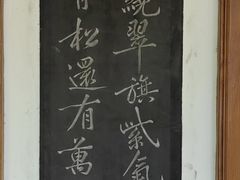 翠旗紫氣
松還有萬